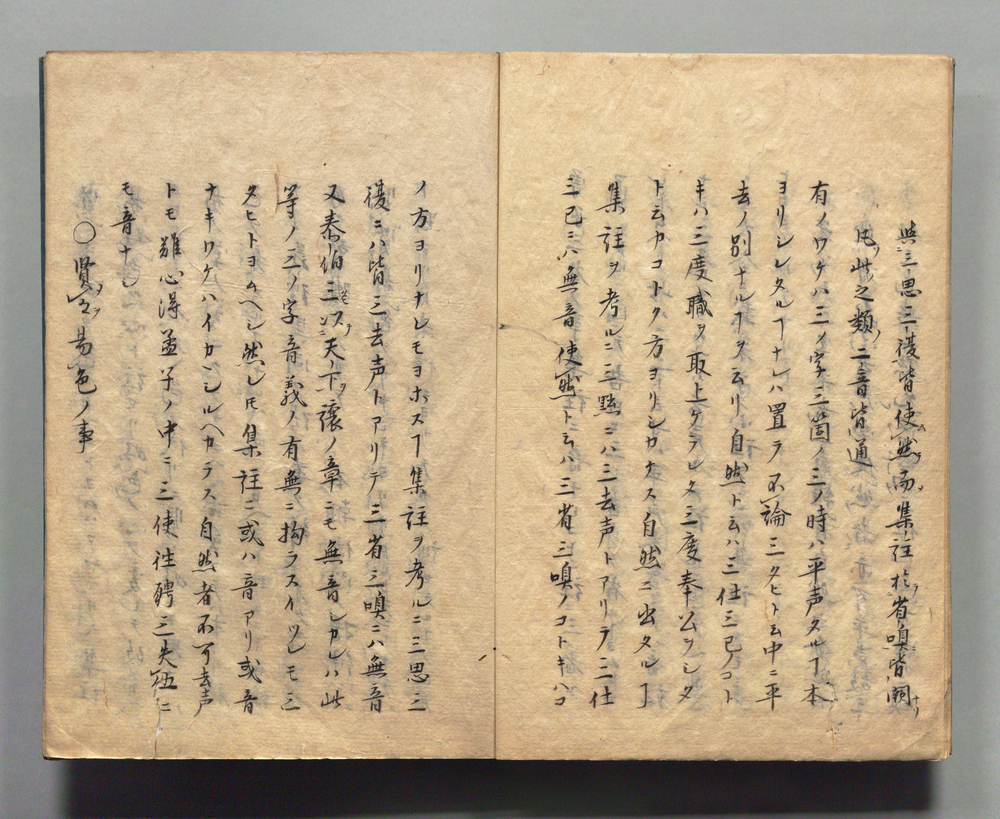 與三思三復皆使然而集註於省嗅皆闕
凡此之類二音皆通
有ノワケハ三ノ字三箇ノ三ノ時ハ平声タルヿ本
ヨリシレタルヿナレハ置テ不論三タヒト云中ニ平
去ノ別ナルヿヲ云リ自然ト云ハ三仕三已ノコト
キハ三度職ヲ取上ケラレタ三度奉公ヲシタ
ト云カコトク方ヨリシカナス自然ニ出タルヿ
集註ヲ考ルニ三黜ニハ三去声トアリテ三仕
三已ニハ無音使然ト云ハ三省三嗅ノコトキハコ
ノ方ヨリナシモヨホスヿ集註ヲ考ルニ三思三
復ニハ皆三去声トアリテ三省三嗅ニハ無音
又泰伯三以天下讓ノ章ニモ無音シカレハ此
等ノ三ノ字音義ノ有無ニ拘ラスイツレモ三
タヒトヨムヘシ然レ𪜈集註ニ或ハ音アリ或音
ナキワケハイカンシルヘカラス自然者不可去声
トモ難心得孟子ノ中ニ三使往聘三失伍ニ
モ音ナシ
〇賢賢易色ノ事